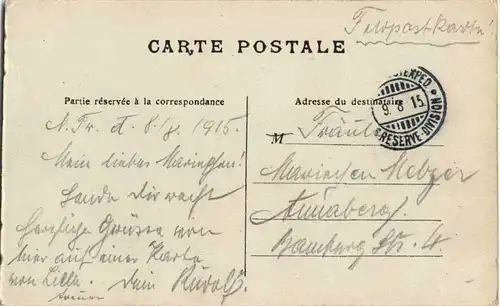 Feldpostkarte!
CARTE POSTALE
Partie réservée à la correspondance
Adresse du destinataire
EXPED
9 8 15
RESERVE-DIVISION
N. Fr. d. 8/8. 1915.
Mein liebes Mariechen!
Sende Dir recht
herzliche Grüsse von
hier auf einer Karte
von Lille. Dein Rudolf.
M
Fräul
Mariechen Metzger
Annaberg.
Bamberg Str. 4